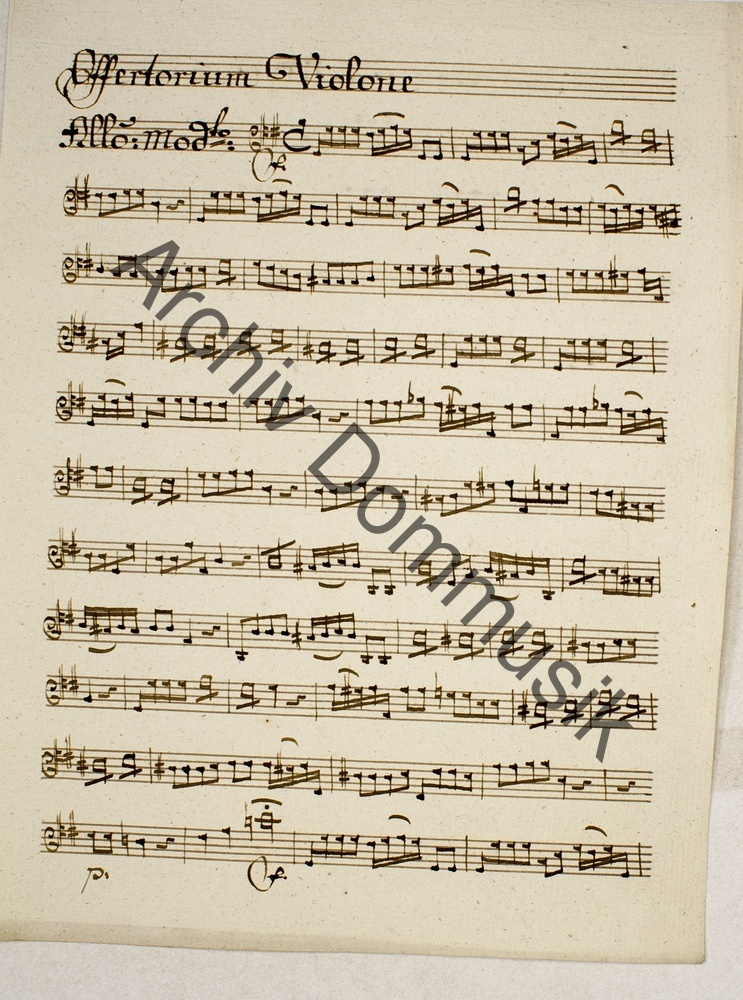 Offertorium Violone
Allo: modto:
f.
Archiv Dommusik
p. f.